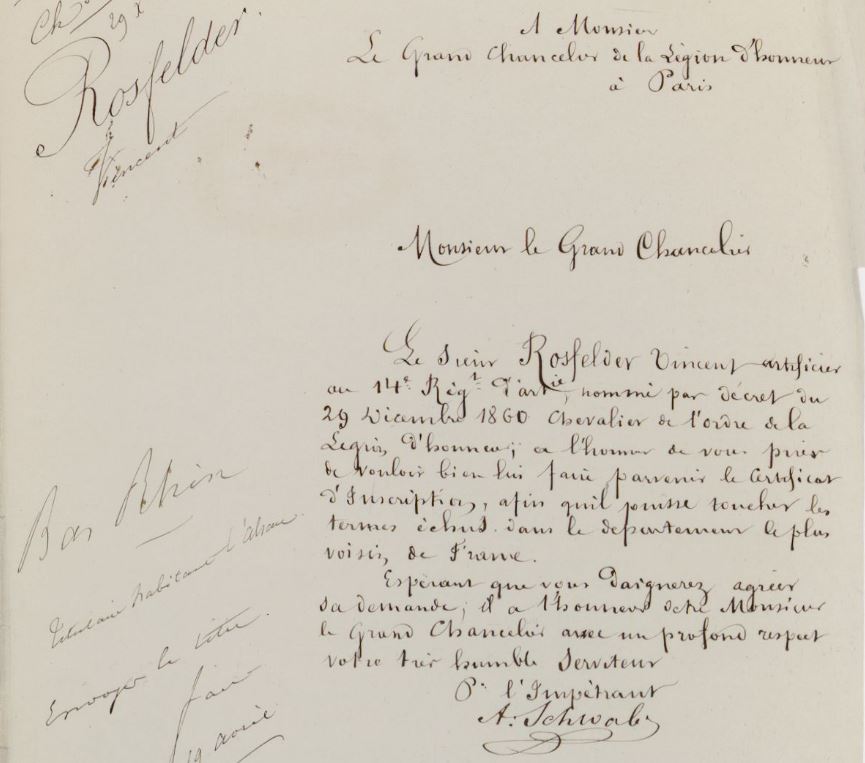 Ch
29 X
Rosfelder.
Vincent
A Monsieur
Le Grand Chancelier de la Légion d'honneur
à Paris
Monsieur le Grand Chancelier
Le Sieur Rosfelder Vincent artificier
au 14e Régt d'artie, nommé par décret du
29 Décembre 1860 Chevalier de l'ordre de la
Légion d'honneur; a l'honneur de vous prier
de vouloir bien lui faire parvenir le Certificat
d'Inscription, afin qu'il puisse toucher les
termes échus dans le département le plus
voisin de France.
Espérant que vous Daignerez agréer
sa demande; il a l'honneur d'être Monsieur
le Grand Chancelier avec un profond respect
votre très humble Serviteur
Pr l'Impétrant
A. Schwab
Bas Rhin
Titulaire habitant l'Alsace
Envoyer le titre.
faire
19 avril